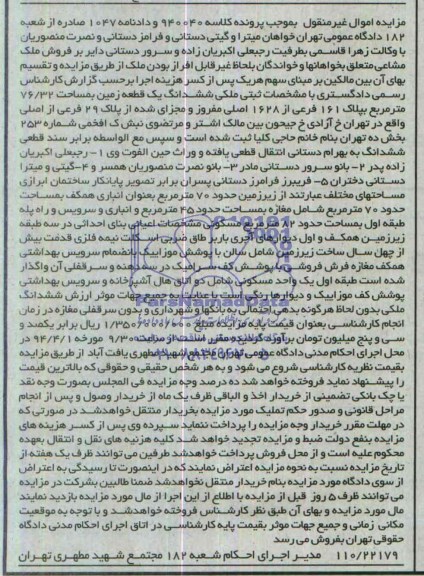 مزایده اموال غیرمنقول بموجب پرونده کلاسه 940040 و دادنامه 1047 صادره از شعبه
182 دادگاه عمومی تهران خواهان میترا و گیتی دستانی و فرامرز دستانی و نصرت منصوریان
با وکالت زهرا قاسمی بطرفیت رجبعلی اکبریان زاده و سرور دستانی دایر بر فروش ملک
مشاعی متعلق بخواهانها و خواندگان بلحاظ غیر قابل افراز بودن ملک از طریق مزایده و تقسیم
بهای آن بین مالکین بر مبنای سهم هریک پس از کسر هزینه اجرا برحسب گزارش کارشناس
رسمی دادگستری با مشخصات ثبتی ملکی ششدانگ یک قطعه زمین بمساحت 76/32
مترمربع بپلاک 161 فرعی از 1628 اصلی مفروز و مجزای شده از پلاک 29 فرعی از اصلی
واقع در تهران خ آزادی خ جیحون بین مالک اشتر و مرتضوی نبش ک افخمی شماره 253
بخش ده تهران بنام خانم حاجی کلیا ثبت شده است و سپس مع الواسطه برابر سند قطعی
ششدانگ به بهرام دستانی انتقال قطعی یافته و وراث حین الفوت وی 1- رجبعلی اکبریان
زاده پدر 2- بانو سرور دستانی مادر 3- بانو نصرت منصوریان همسر و 4- گیتی و میترا
دستانی دختران 5- فریبرز فرامرز دستانی پسران برابر تصویر پایانکار ساختمان ابرازی
مساحتهای مختلف عبارتند از زیرزمین حدود 70 مترمربع بعنوان انباری همکف بمساحت
حدود 70 مترمربع شامل مغازه بمساحت حدود 45 مترمربع و انباری و سرویس و راه پله
طبقه اول بمساحت حدود مسکونی مشخصات اعیانی بنای احداثی در سه طبقه
زیرزمین همکف و اول دیوارهای آجری باربر طاق ضربی اسکلت نیمه فلزی قدمت بیش
از چهل سال ساخت زیرزمین شامل سالن با پوشش موزاییک بانضمام سرویس بهداشتی
همکف مغازه فرش فروشی با پوشش کف سرامیک در و سرقفلی آن واگذار
شده است طبقه اول یک واحد مسکونی شامل دو اتاق هال آشپزخانه و سرویس بهداشتی
پوشش کف موزاییک و دیوارها رنگی است با عنایت به جمیع جهات موثر ارزش ششدانگ
ملکی بدون لحاظ هرگونه بدهی احتمالی به بانکها و شهرداری و بدون سرقفلی مغازه در زمان
انجام کارشناسی بعنوان قیمت پایه مزایده مبلغ 1/350/000/000 ریال برابر یکصد و
سی و پنج میلیون تومان برآورد گردیده مقرر است از ساعت 9/30 مورخه 94/4/1 در
محل اجرای احکام مدنی دادگاه عمومی تهران مجتمع شهید مطهری یافت آباد از طریق مزایده
بقیمت نظریه کارشناسی شروع می شود و به هر شخص حقیقی و حقوقی که بالاترین قیمت
را پیشنهاد نماید فروخته خواهد شد ده درصد وجه مزایده فی المجلس بصورت وجه نقد
یا چک بانکی تضمینی از خریدار اخذ و الباقی ظرف یک ماه از خریدار وصول و پس از انجام
مراحل قانونی و صدور حکم تملیک مورد مزایده بخریدار منتقل خواهدشد در صورتی که
در مهلت مقرر خریدار وجه مزایده را پرداخت ننماید سپرده وی پس از کسر هزینه های
مزایده بنفع دولت ضبط و مزایده تجدید خواهد شد کلیه هزنیه های نقل و انتقال بعهده
محکوم علیه است و از محل فروش پرداخت خواهدشد طرفین می توانند ظرف یک هفته از
تاریخ مزایده نسبت به نحوه مزایده اعتراض نمایند که در اینصورت تا رسیدگی به اعتراض
از سوی دادگاه مورد مزایده بنام خریدار منتقل نخواهدشد ضمنا طالبین بشرکت در مزایده
می توانند ظرف 5 روز قبل از مزایده با اطلاع از این اجرا از مال مورد مزایده بازدید نمایند
مال مورد مزایده و بهای آن طبق نظر کارشناس فروخته خواهدشد و با توجه به موقعیت
مکانی زمانی و جمیع جهات موثر بقیمت پایه کارشناسی در اتاق اجرای احکام مدنی دادگاه
حقوقی تهران بفروش می رسد
110/22179 مدیر اجرای احکام شعبه 182 مجتمع شهید مطهری تهران